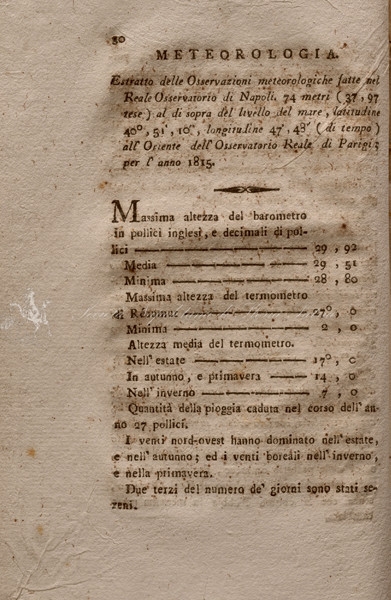 30
METEOROLOGIA.
Estratto delle Osservazioni meteorologiche fatte nel
Reale Osservatorio di Napoli. 74 metri (37, 97
tese) al di sopra del livello del mare, latitudine
40°, 51', 10", longitudine 47', 48" (di tempo)
all'Oriente dell'Osservatorio Reale di Parigi;
per l'anno 1815.
Massima altezza del barometro
in pollici inglesi, e decimali di pol-
lici 29, 92
Media 29, 51
Minima 28, 80
Massima altezza del termometro
di 27°, 6
Minima 2, 0
Altezza media del termometro.
Nell'estate 17°, 0
In autunno, e primavera 14, 0
Nell'inverno 7, 0
Quantità della pioggia caduta nel corso dell'an-
no 27 pollici.
I venti nord-ovest hanno dominato nell'estate,
e nell'autunno; ed i venti boreali nell'inverno,
e nella primavera.
Due terzi del numero de' giorni sono stati se-
reni.